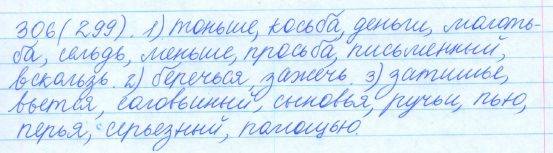 306(299). 1) тоньше, косьба, деньги, молоть-
ба, сельдь, меньше, просьба, письменный,
вскользь. 2) беречься, зажечь. 3) затишье,
вьётся, соловьиный, сыновья, ручьи, пью,
перья, серьезный, помощью.